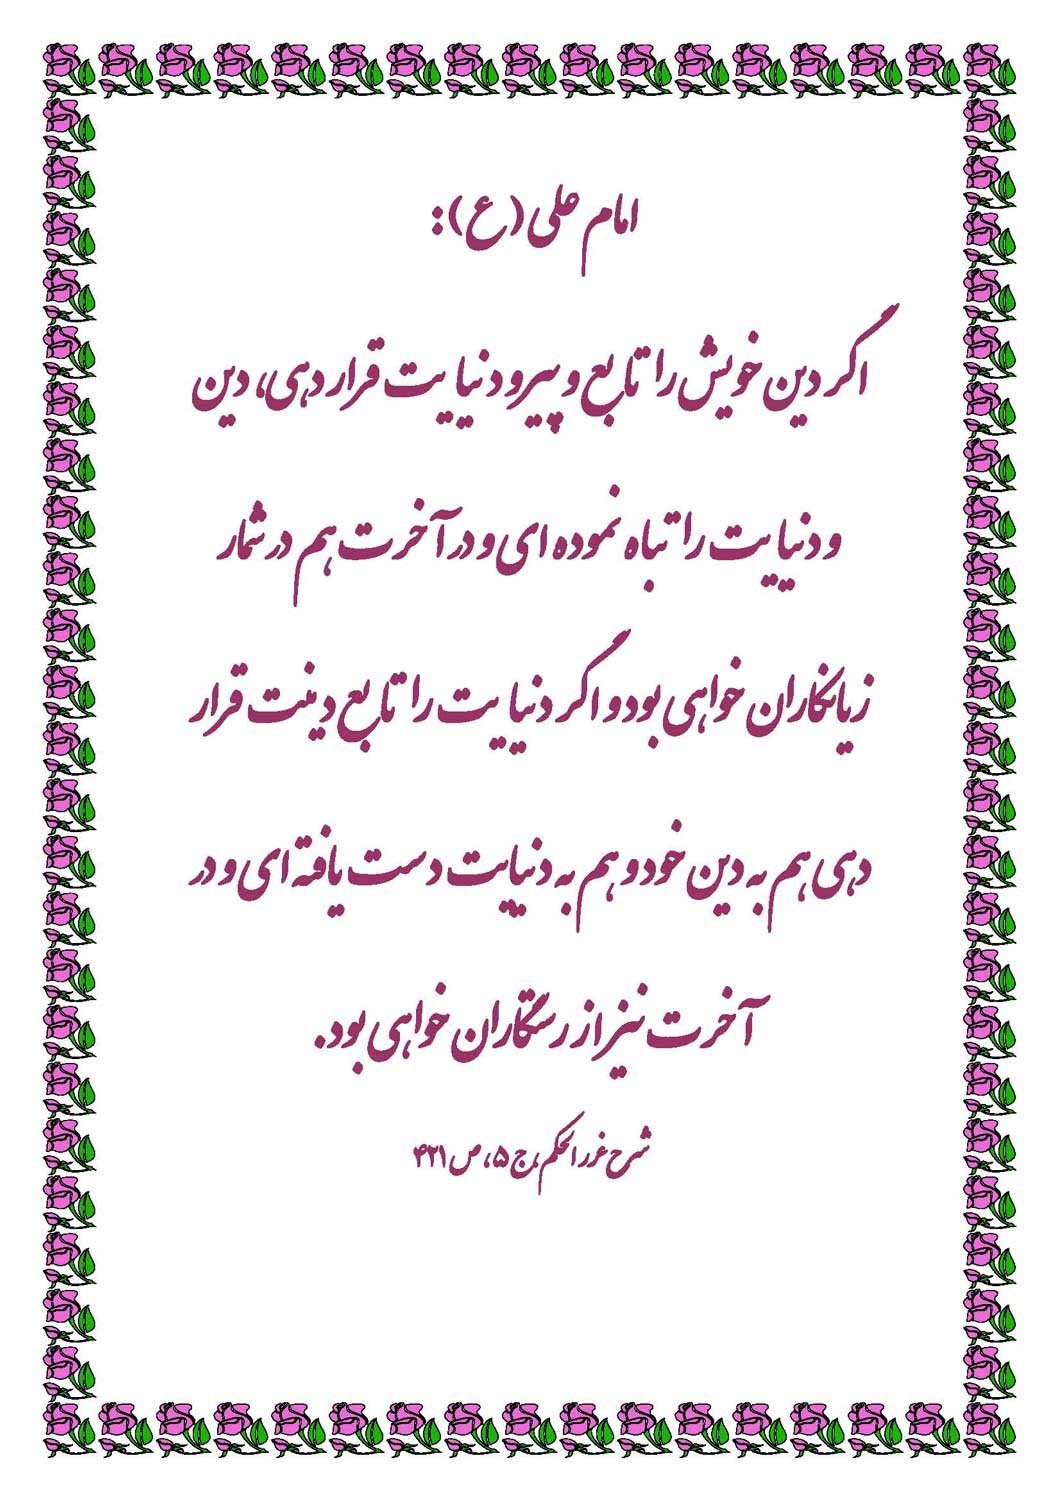 امام علی(ع):
اگر دین خویش را تابع و پیرو دنیایت قرار دهی، دین
و دنیایت را تباه نموده ای و در آخرت هم در شمار
زیانکاران خواهی بود و اگر دنیایت را تابع دینت قرار
دهی هم به دین خود و هم به دنیایت دست یافته ای و در
آخرت نیز از رستگاران خواهی بود.
شرح غرر الحکم، ج ۵، ص ۴۲۱